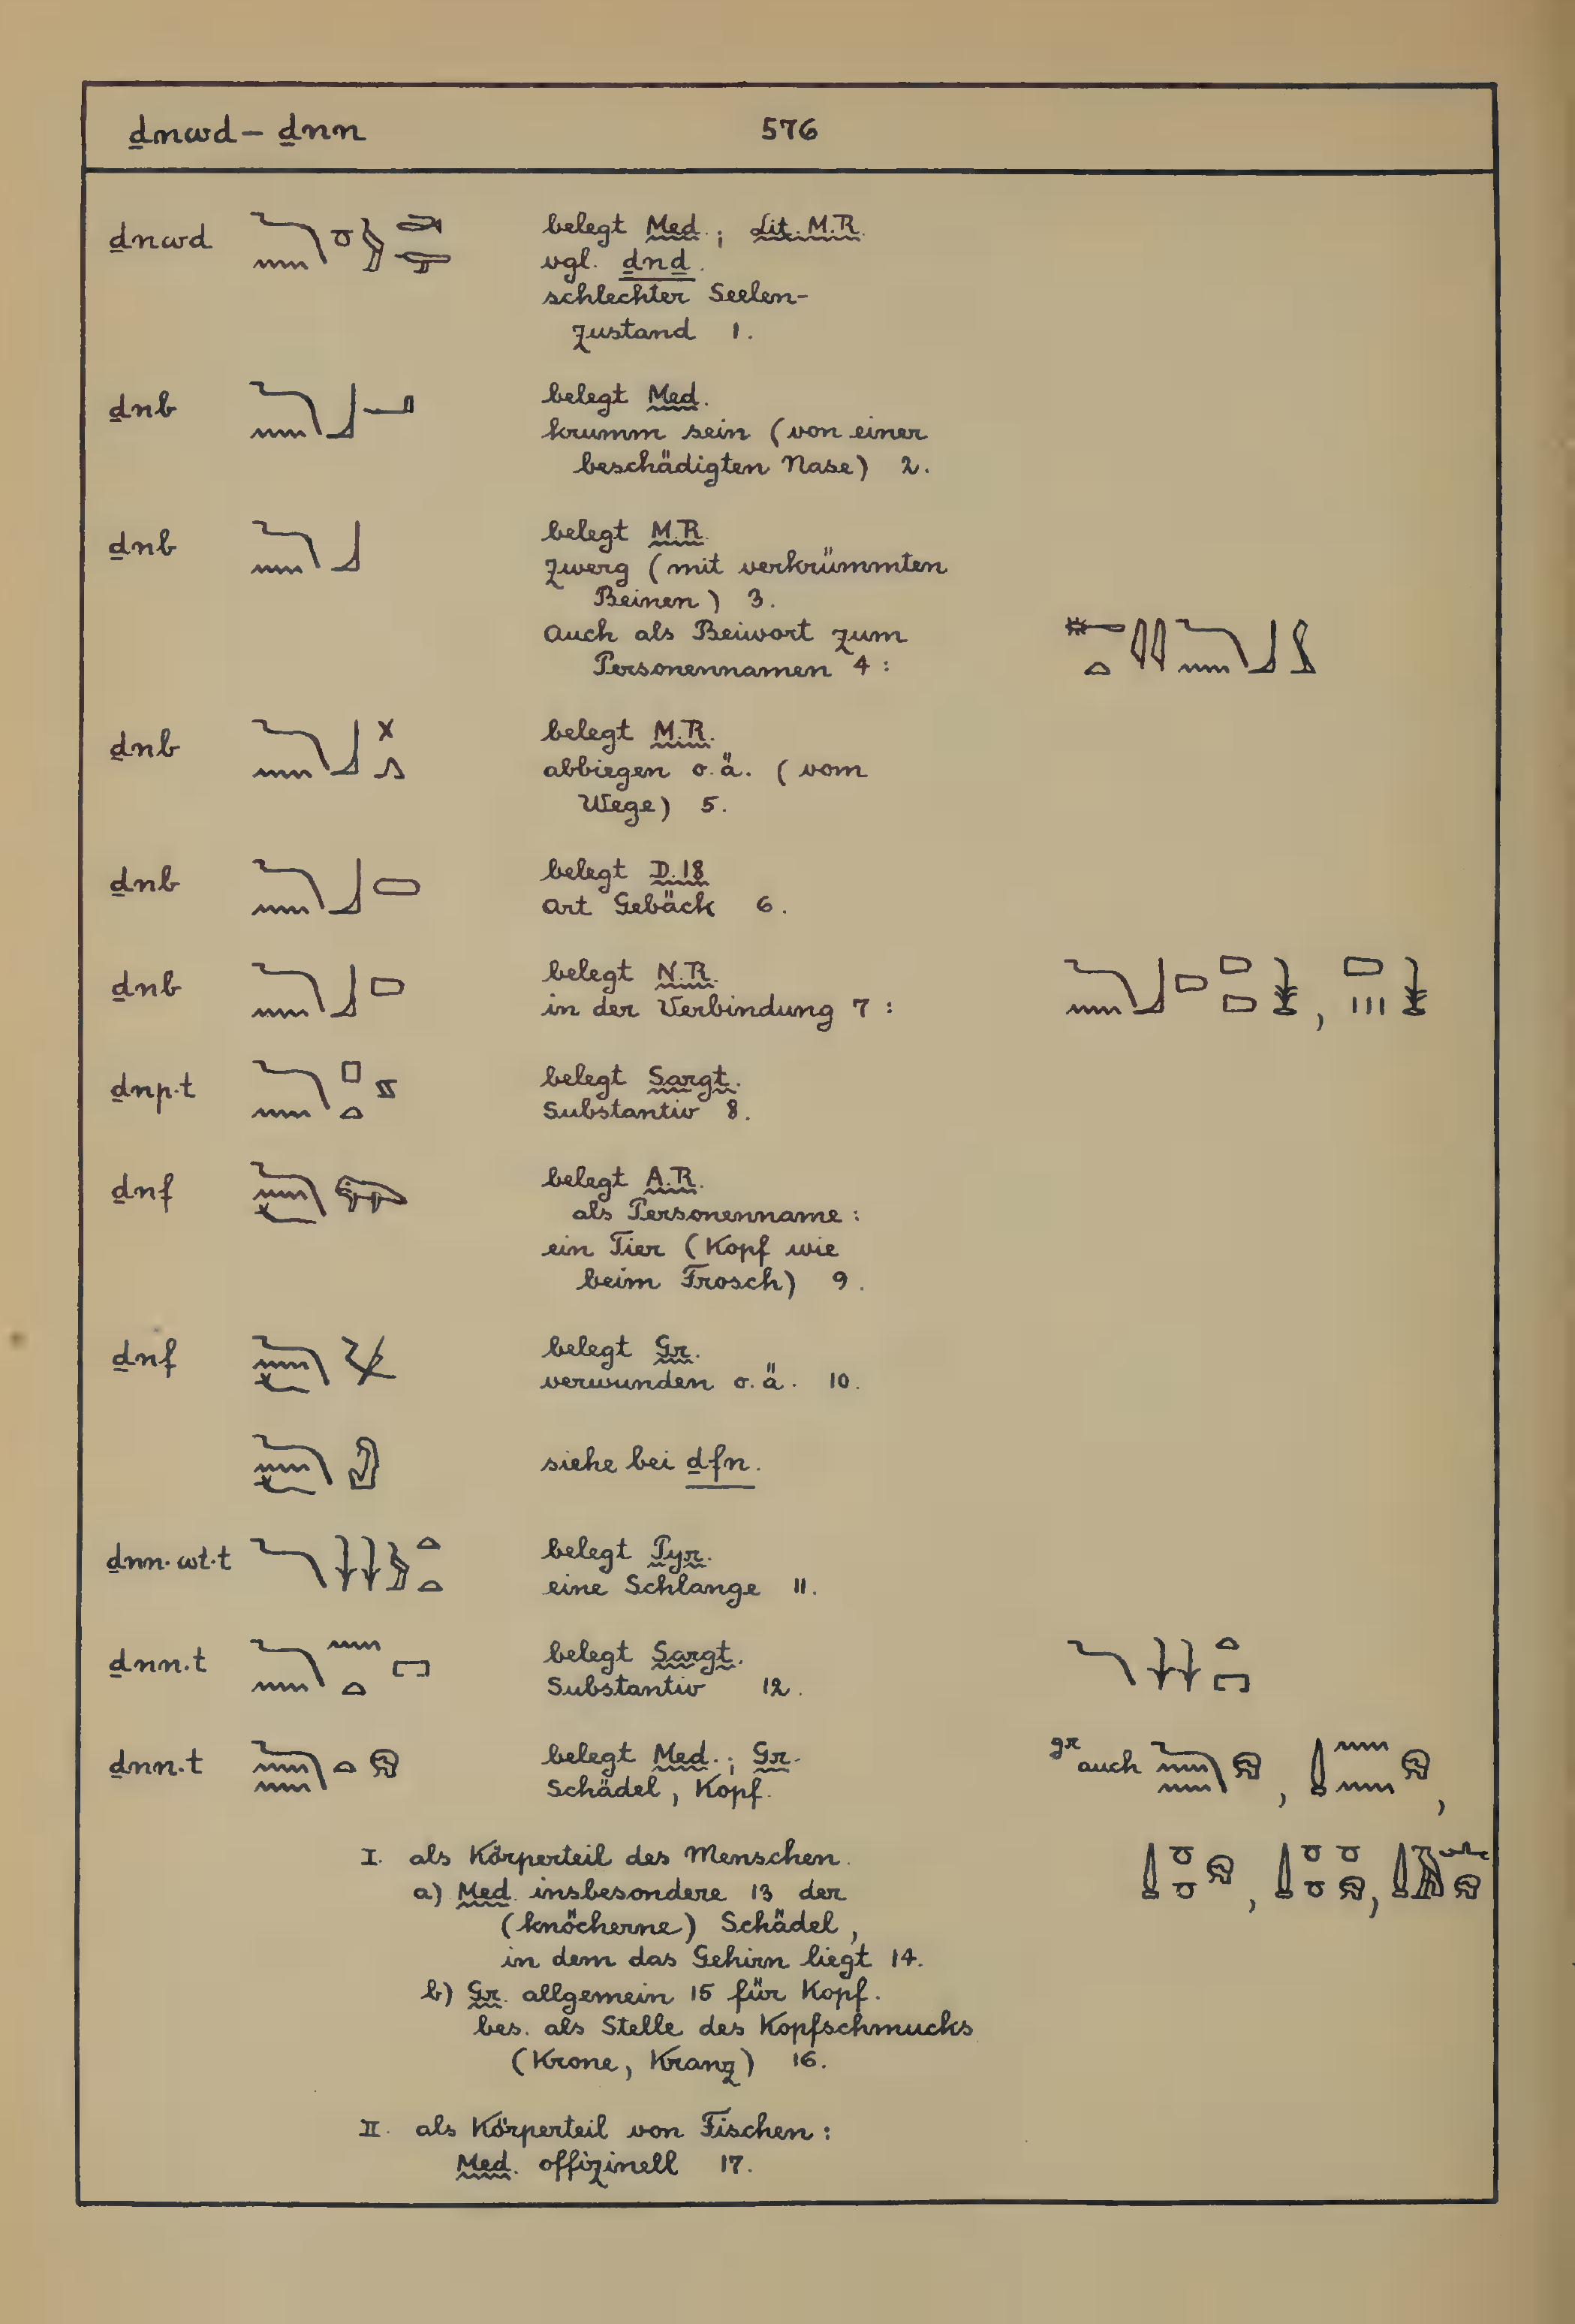 ḏnwd – ḏnn 576
ḏnwd belegt Med.; Lit. M.R.
vgl. ḏnḏ.
schlechter Seelen-
zustand 1.
ḏnb belegt Med.
krumm sein (von einer
beschädigten Nase) 2.
ḏnb belegt M.R.
Zwerg (mit verkrümmten
Beinen) 3.
Auch als Beiwort zum
Personennamen 4:
ḏnb belegt M.R.
abbiegen o.ä. (vom
Wege) 5.
ḏnb belegt D.18
Art Gebäck 6.
ḏnb belegt N.R.
in der Verbindung 7:
ḏnp.t belegt Sargt.
Substantiv 8.
ḏnf belegt A.R.
als Personenname:
ein Tier (Kopf wie
beim Frosch) 9.
ḏnf belegt Gr.
verwunden o.ä. 10.
siehe bei ḏfn.
ḏnn.wt.t belegt Pyr.
eine Schlange 11.
ḏnn.t belegt Sargt.
Substantiv 12.
ḏnn.t belegt Med.; Gr. gr auch
Schädel, Kopf.
I. als Körperteil des Menschen.
a) Med. insbesondere 13 der
(knöcherne) Schädel,
in dem das Gehirn liegt 14.
b) Gr. allgemein 15 für Kopf.
bes. als Stelle des Kopfschmucks
(Krone, Kranz) 16.
II. als Körperteil von Fischen:
Med. offizinell 17.